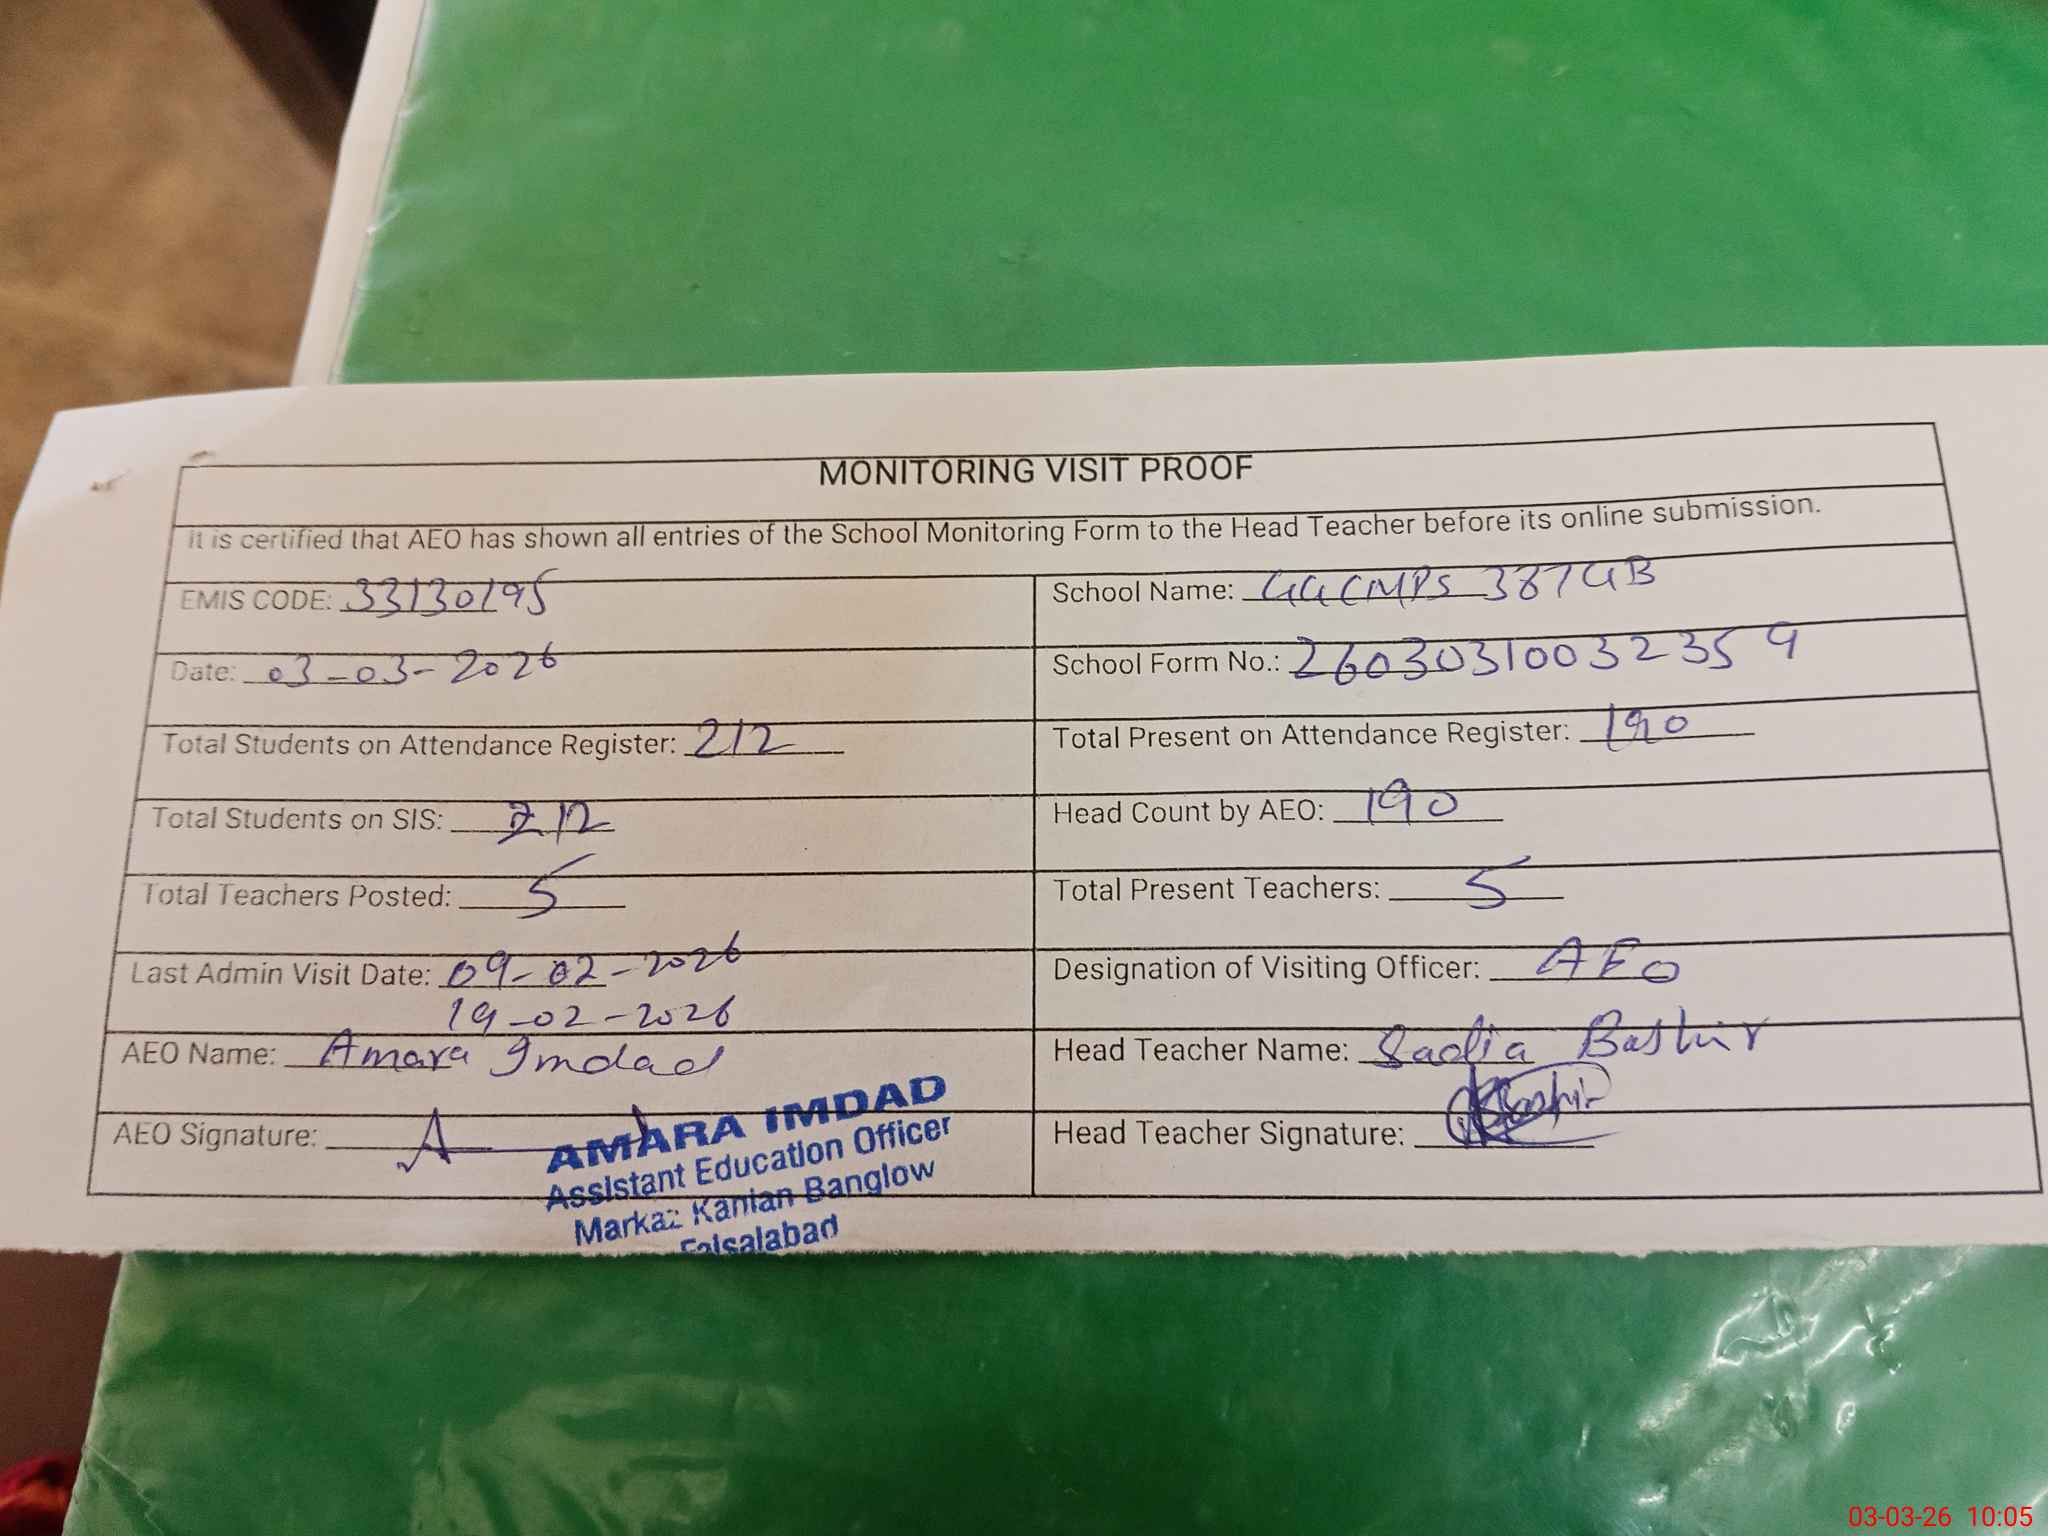 MONITORING VISIT PROOF
It is certified that AEO has shown all entries of the School Monitoring Form to the Head Teacher before its online submission.
EMIS CODE: 33130195
School Name: GGCMPS 387GB
Date: 03-03-2026
School Form No.: 26030310032359
Total Students on Attendance Register: 212
Total Present on Attendance Register: 190
Total Students on SIS: 212
Head Count by AEO: 190
Total Teachers Posted: 5
Total Present Teachers: 5
Last Admin Visit Date: 09-02-2026
19-02-2026
Designation of Visiting Officer: AEO
AEO Name: Amara Imdad
Head Teacher Name: Sadia Bashir
AEO Signature: A
Head Teacher Signature: Bashir
AMARA IMDAD
Assistant Education Officer
Markaz Kanian Banglow
Faisalabad
03-03-26 10:05